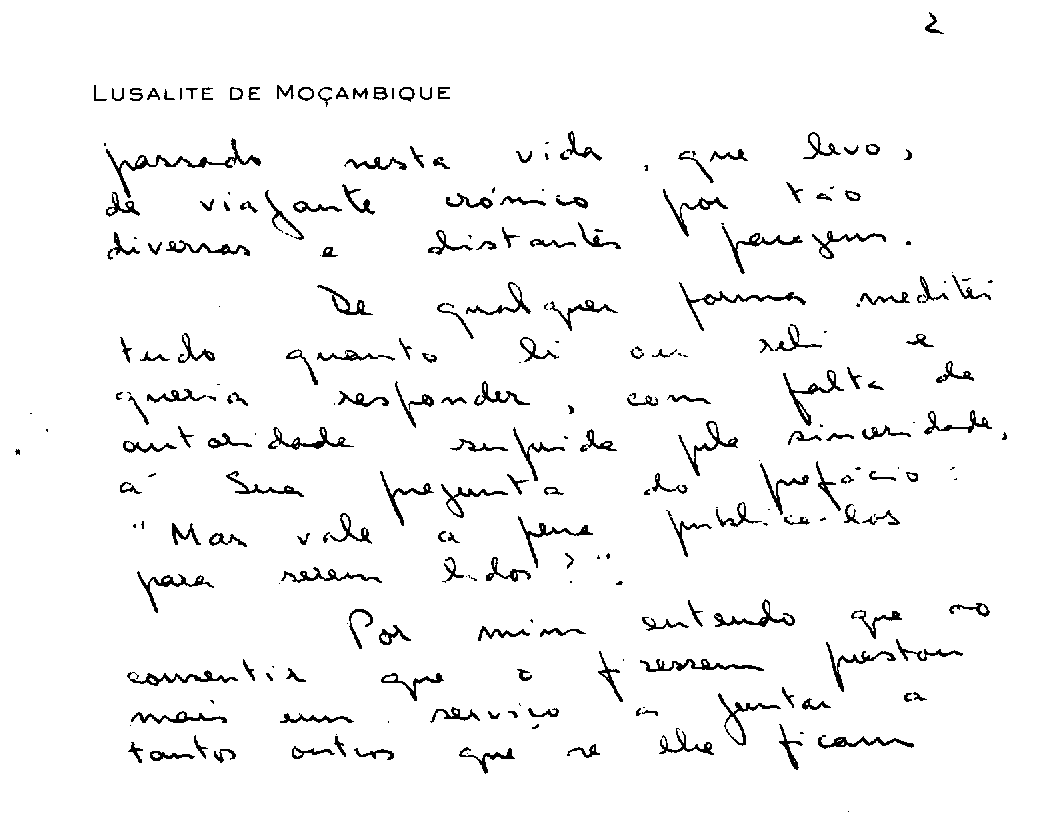 2
LUSALITE DE MOÇAMBIQUE
passado nesta vida, que levo,
de viajante crónico por tão
diversas e distantes paragens.
De qualquer forma meditei
tudo quanto li ou reli e
queria responder, com falta de
autoridade suprida pela sinceridade,
à Sua pergunta do prefácio:
"Mas vale a pena publicá-los
para serem lidos?".
Por mim entendo que ao
consentir que o fizessem prestou
mais um serviço a juntar a
tantos outros que se lhe ficam